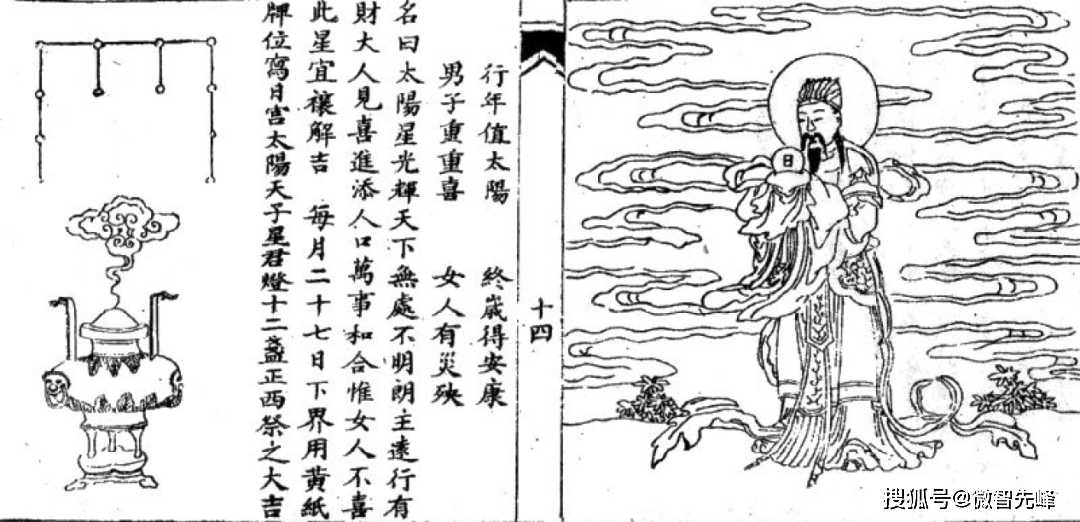 行年值太陽　終歲得安康
男子重重喜　女人有災殃
名曰太陽星光輝天下無處不明朗主遠行有
財大人見喜進添人口萬事和合惟女人不喜
此星宜禳解吉　每月二十七日下界用黃紙
牌位寫日宮太陽天子星君燈十二盞正西祭之大吉
十四
日
搜狐号@微智先峰